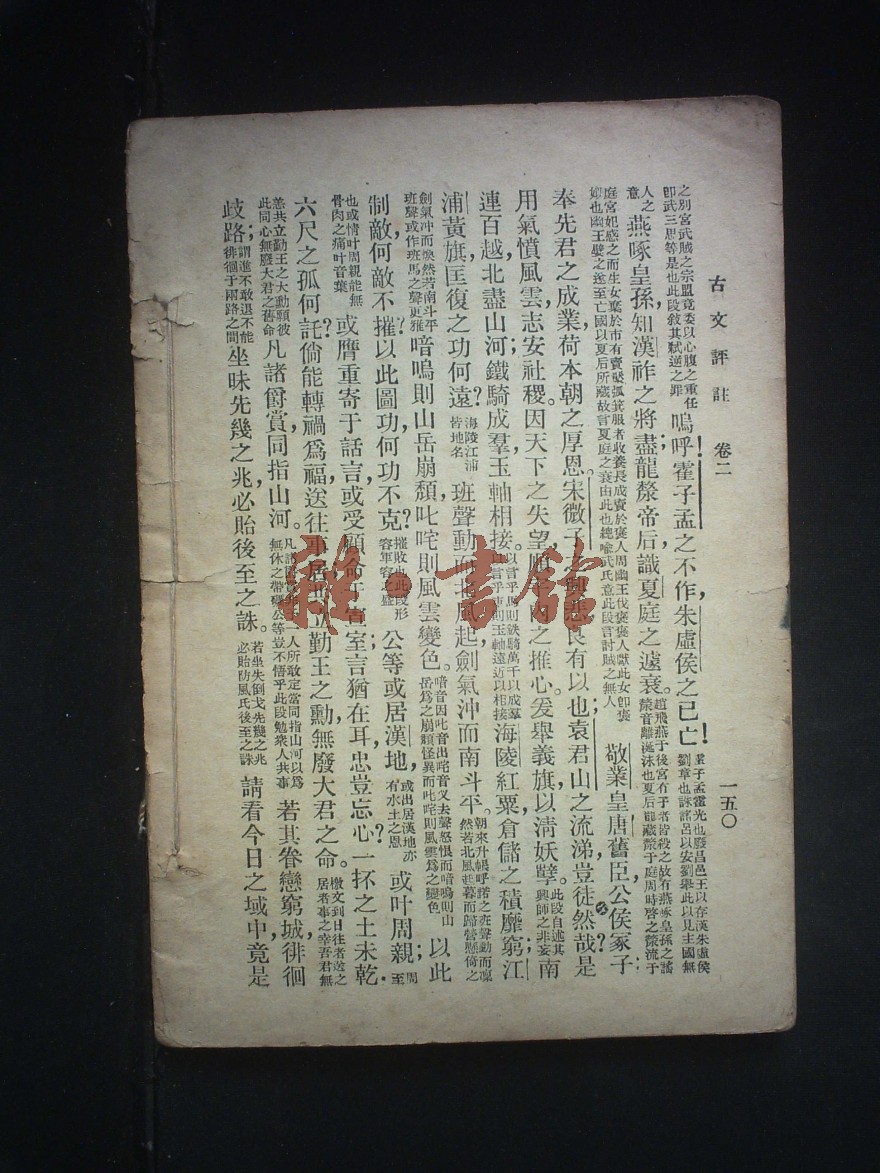 古文評註 卷二 一五〇
之別宮武賊之宗盟竟委以心腹之重任
卽武三思等是也此段敘其弒逆之罪
嗚呼!霍子孟之不作,朱虛侯之已亡!
霍子孟霍光也廢昌邑王以存漢朱虛侯
劉章也誅諸呂以安劉舉此以見主國無
人之
意
燕啄皇孫,知漢祚之將盡;龍漦帝后,識夏庭之遽衰。
趙飛燕于後宮有子者皆殺之故有燕啄皇孫之謠
漦音離涎沫也夏后龍藏漦于庭周時啓之漦流于
庭宮妃感之而生女棄於市有賣檿弧箕服者收養長成賣於褒人周幽王伐褒褒人獻此女卽褒
姒也幽王嬖之遂至亡國以夏后所藏故言夏庭之衰由此也總喩武氏意此段言討賊之無人
敬業皇唐舊臣,公侯冢子;
奉先君之成業,荷本朝之厚恩。宋微子之興悲,良有以也;袁君山之流涕,豈徒然哉?是
用氣憤風雲,志安社稷。因天下之失望,順宇內之推心。爰舉義旗,以淸妖孽。
此段自述其
興師之非妄
南
連百越,北盡山河;鐵騎成羣,玉軸相接。
以言乎馬則鐵騎萬千以成羣
以言乎車則玉軸遠近以相接
海陵紅粟,倉儲之積靡窮;江
浦黃旗,匡復之功何遠?
海陵江浦
皆地名
班聲動而北風起,劍氣沖而南斗平。
朝來升帳呼諾之班聲動而凜
然若北風起暮而歸營懸倚之
劍氣沖而喚然若南斗平
班聲或作班馬之聲更雅
喑嗚則山岳崩頹,叱咤則風雲變色。
喑音因叱音出咤音又去聲怒恨而喑嗚則山
岳爲之崩頹怪異而叱咤則風雲爲之變色
以此
制敵,何敵不摧?以此圖功,何功不克?
摧敗也此段形
容軍容之盛
公等或居漢地,
或出居漢地亦
有水土之恩
或叶周親;
周
至
也或情叶周親能無
骨肉之痛叶音葉
或膺重寄于話言,或受顧命于宣室;言猶在耳,忠豈忘心?一抔之土未乾,
六尺之孤何託?倘能轉禍爲福,送往事居,共立勤王之勳,無廢大君之命。
檄文到日往者送之
居者事之幸吾君無
恙共立勤王之大勳願彼
此同心無廢大君之舊命
凡諸爵賞,同指山河。
人所敢定當同指山河以爲
無休之帶礪公等豈不悟乎此段勉衆人共事
若其眷戀窮城,徘徊
歧路;
謂進不敢退不能
徘徊于兩路之間
坐昧先幾之兆,必貽後至之誅。
若坐失倒戈先幾之兆
必貽防風氏後至之誅
請看今日之域中,竟是